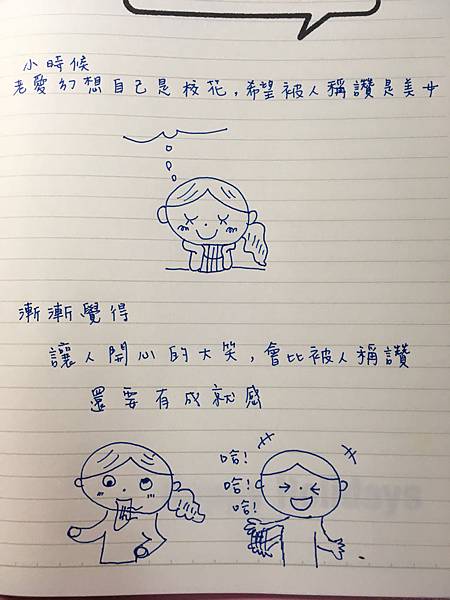 小時候
老愛幻想自己是校花,希望被人稱讚是美女
漸漸覺得
讓人開心的大笑,會比被人稱讚
還要有成就感
哈!
哈!
哈!